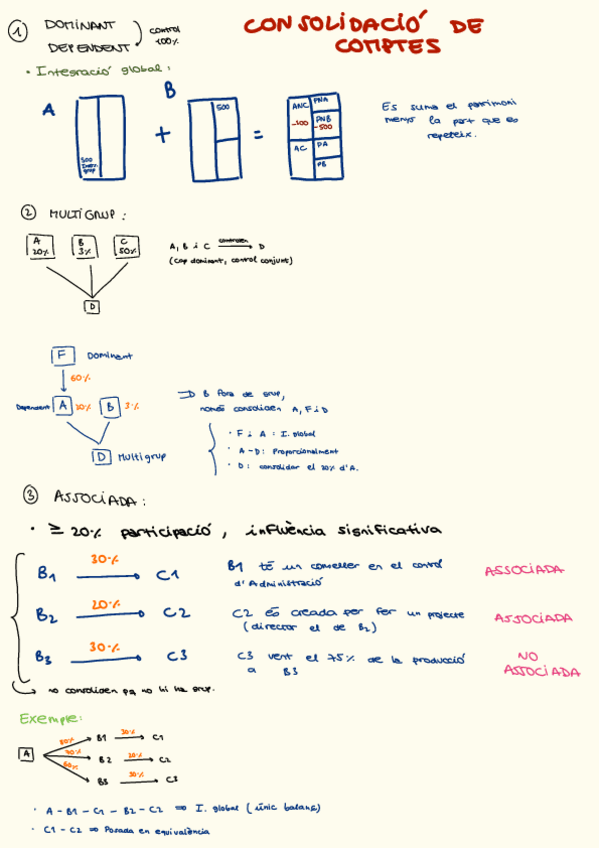 CONSOLIDACIÓ DE
COMPTES
① DOMINANT
DEPENDENT
control
100%
• Integració global:
A
B
500
500
grup
+
=
ANC
-100
AC
PNA
PNB
-500
PA
PB
Es suma el patrimoni
menys la part que es
repeteix.
② MULTIGRUP:
A
20%
B
3%
C
50%
D
A, B i C controlen D
(cap dominant, control conjunt)
F Dominant
60%
Dependent A 20% B 3%
D Multigrup
⇒ B fora de grup,
només consoliden A, F i D
• F i A: I. global
• A-D: Proporcionalment
• D: consolidar el 20% d'A.
③ ASSOCIADA:
• ≥ 20% participació, influència significativa
B1 30% C1 B1 té un conseller en el control
d'Administració
ASSOCIADA
B2 20% C2 C2 és creada per fer un projecte
(director el de B2)
ASSOCIADA
B3 30% C3 C3 vent el 75% de la producció
a B3
NO
ASSOCIADA
no consoliden pq no hi ha grup.
Exemple:
A
B1 30% C1
B2 20% C2
B3 30% C3
• A - B1 - C1 - B2 - C2 ⇒ I. global (únic balanç)
• C1 - C2 ⇒ Posada en equivalència